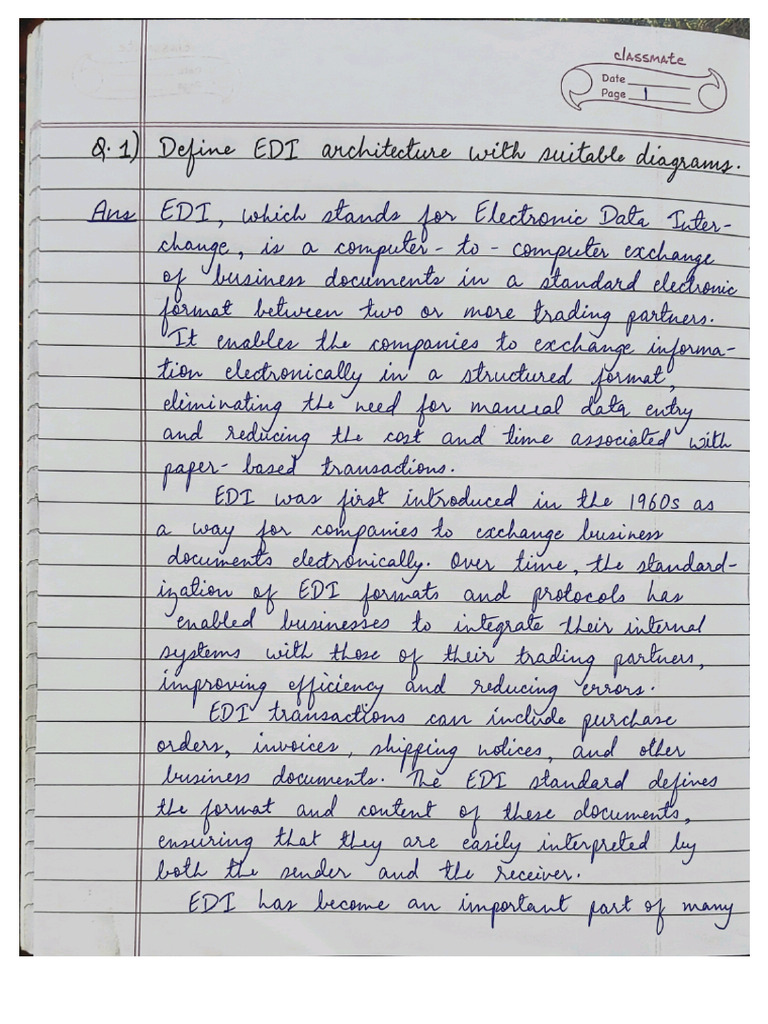 classmate
Date
Page 1
Q.1) Define EDI architecture with suitable diagrams.
Ans EDI, which stands for Electronic Data Inter-
change, is a computer-to-computer exchange
of business documents in a standard electronic
format between two or more trading partners.
It enables the companies to exchange informa-
tion electronically in a structured format,
eliminating the need for manual data entry
and reducing the cost and time associated with
paper-based transactions.
EDI was first introduced in the 1960s as
a way for companies to exchange business
documents electronically. Over time, the standard-
ization of EDI formats and protocols has
enabled businesses to integrate their internal
systems with those of their trading partners,
improving efficiency and reducing errors.
EDI transactions can include purchase
orders, invoices, shipping notices, and other
business documents. The EDI standard defines
the format and content of these documents,
ensuring that they are easily interpreted by
both the sender and the receiver.
EDI has become an important part of many